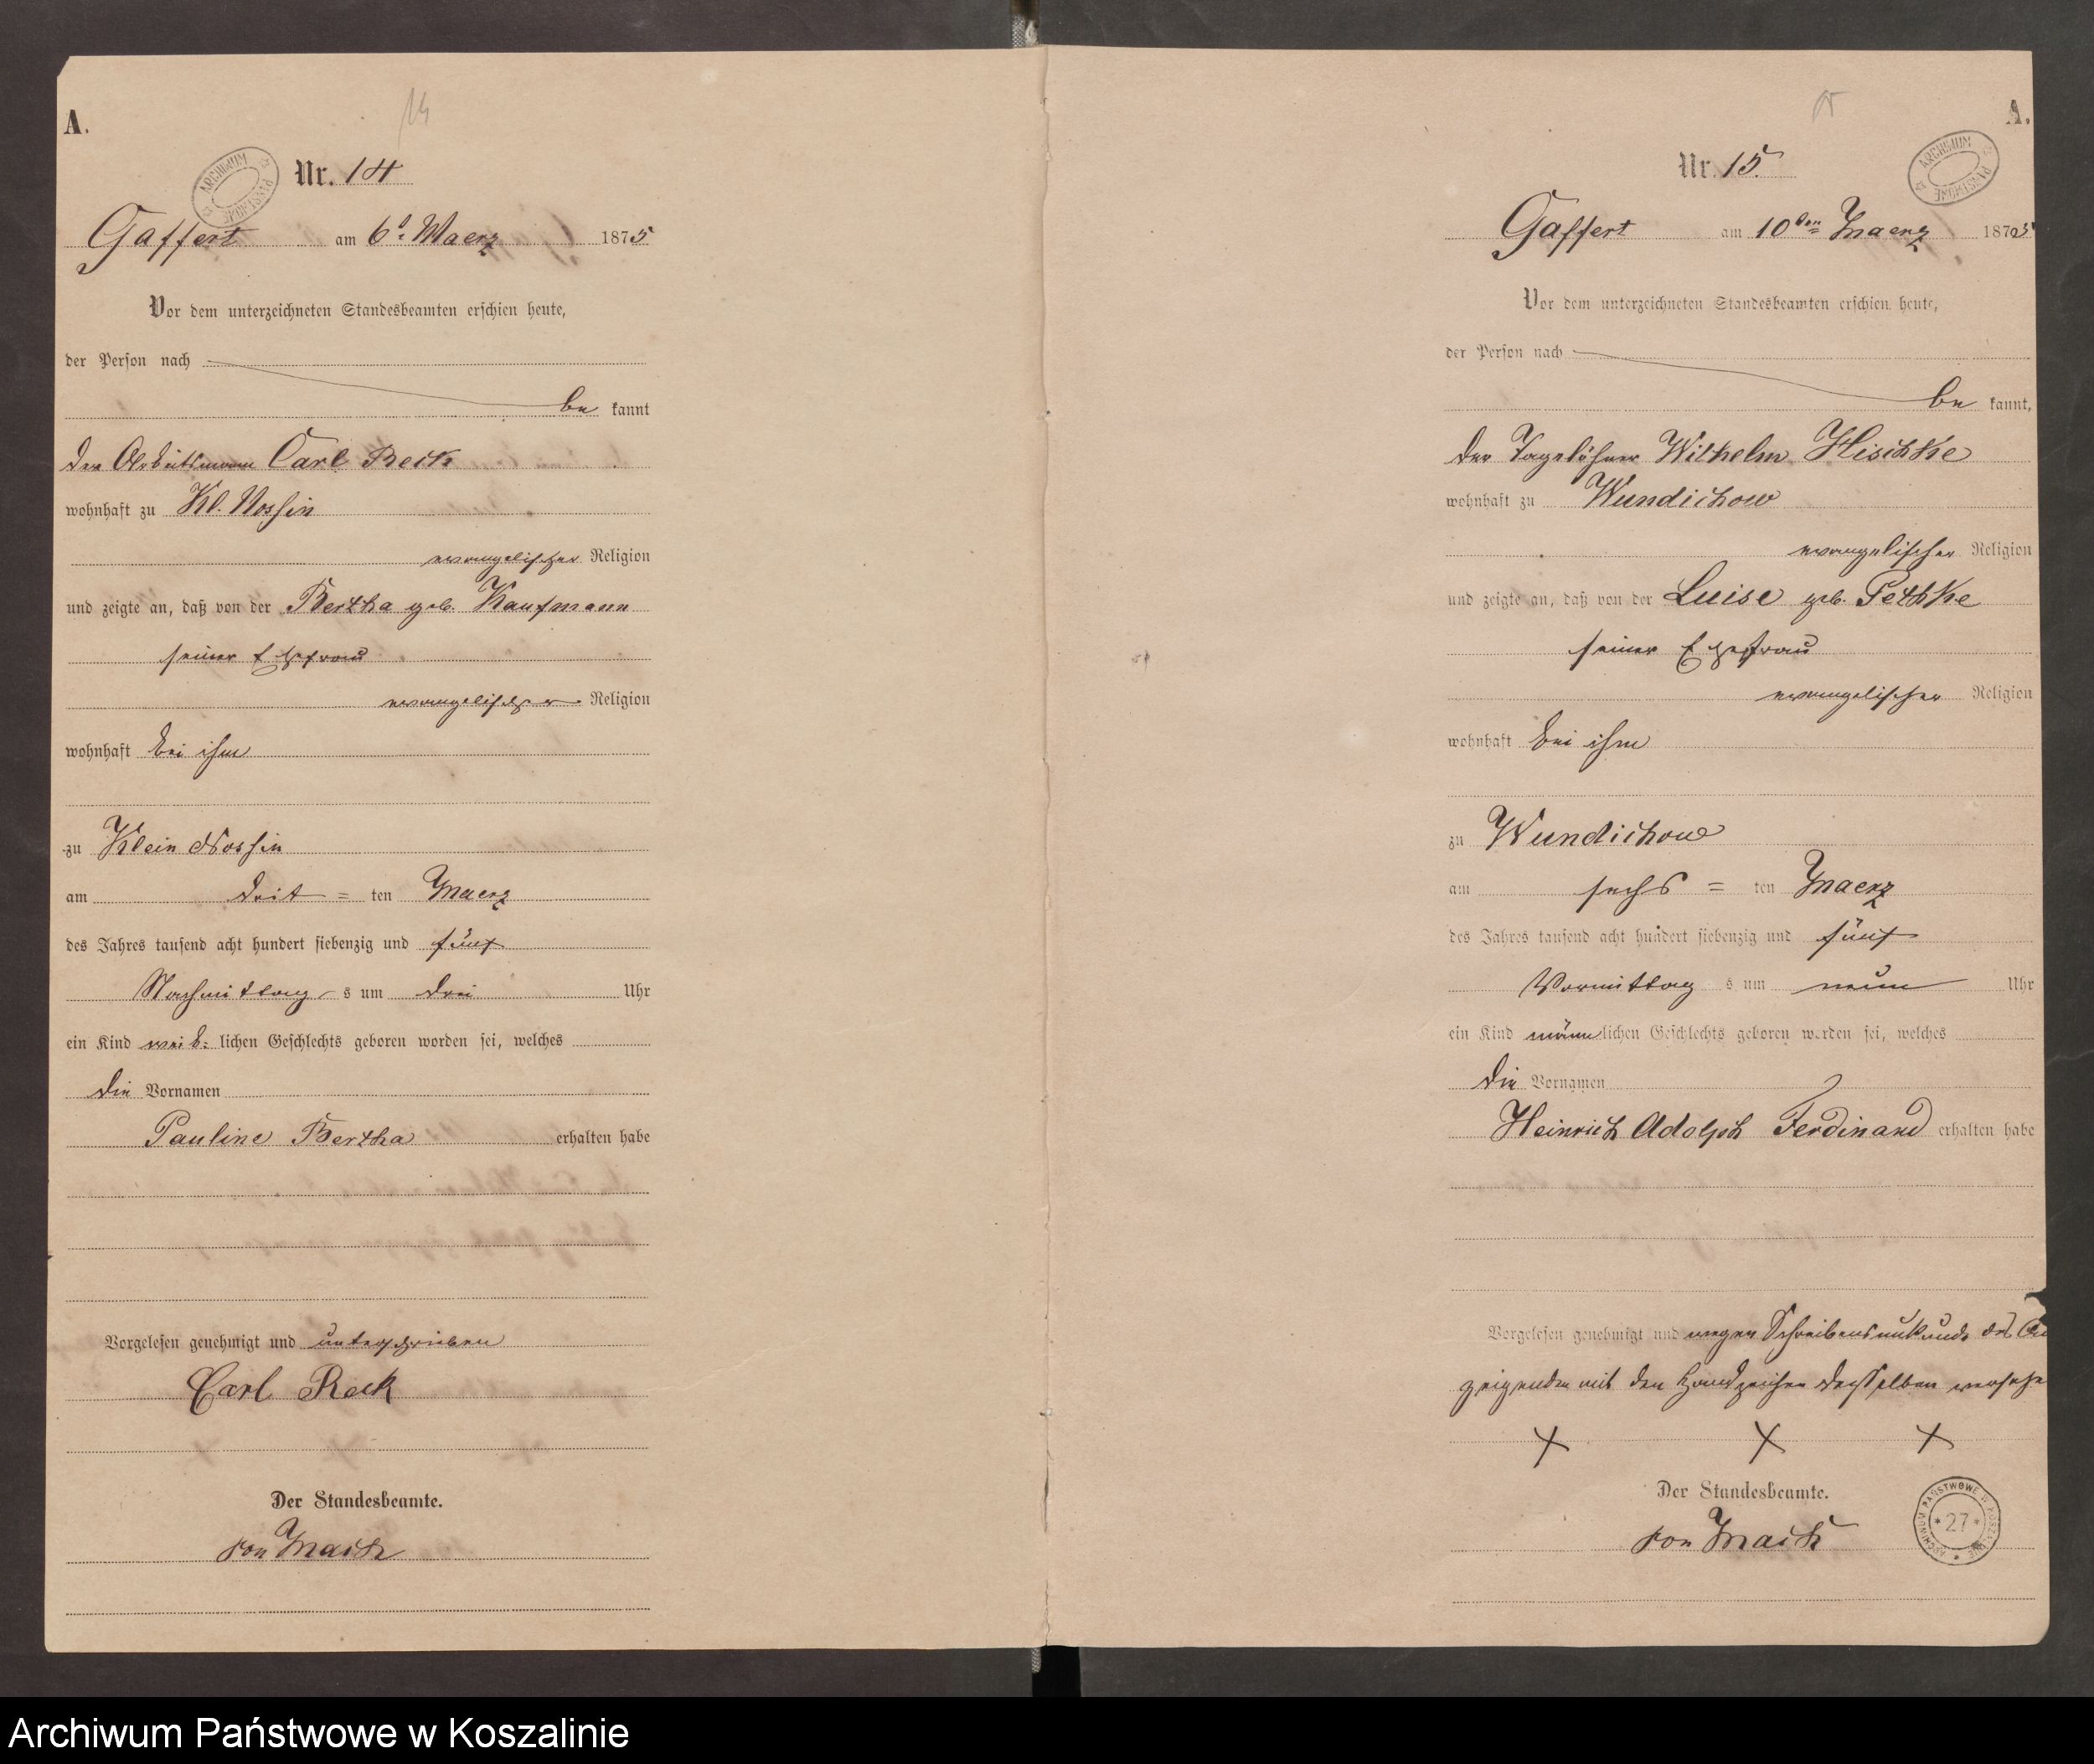 A.
14
Nr. 14
Gaffert am 6t. Maerz 1875
Vor dem unterzeichneten Standesbeamten erschien heute,
der Person nach
be kannt
der Arbeitsmann Carl Reck
wohnhaft zu Kl. Nossin
evangelischer Religion
und zeigte an, daß von der Bertha geb. Kaufmann
seiner Ehefrau
evangelischer Religion
wohnhaft bei ihm
zu Klein Nossin
am dritt = ten Maerz
des Jahres tausend acht hundert siebenzig und fünf
Nachmittag s um drei Uhr
ein Kind weib. lichen Geschlechts geboren worden sei, welches
die Vornamen
Pauline Bertha erhalten habe
Vorgelesen genehmigt und unterschrieben
Carl Reck
Der Standesbeamte.
von Mach
A.
Nr. 15.
Gaffert am 10ten Maerz 1875
Vor dem unterzeichneten Standesbeamten erschien heute,
der Person nach
be kannt,
der Tagelöhner Wilhelm Hischke
wohnhaft zu Wundichow
evangelischer Religion
und zeigte an, daß von der Luise geb. Pethke
seiner Ehefrau
evangelischer Religion
wohnhaft bei ihm
zu Wundichow
am sechs = ten Maerz
des Jahres tausend acht hundert siebenzig und fünf
Vormittag s um neun Uhr
ein Kind männlichen Geschlechts geboren worden sei, welches
die Vornamen
Heinrich Adolph Ferdinand erhalten habe
Vorgelesen genehmigt und wegen Schreibensunkunde des An
zeigenden mit den Handzeichen desselben versehe
+ + +
Der Standesbeamte.
von Mach
ARCHIWUM PAŃSTWOWE W KOSZALINIE
* 27 *
ARCHIWUM PAŃSTWOWE
ARCHIWUM PAŃSTWOWE
Archiwum Państwowe w Koszalinie